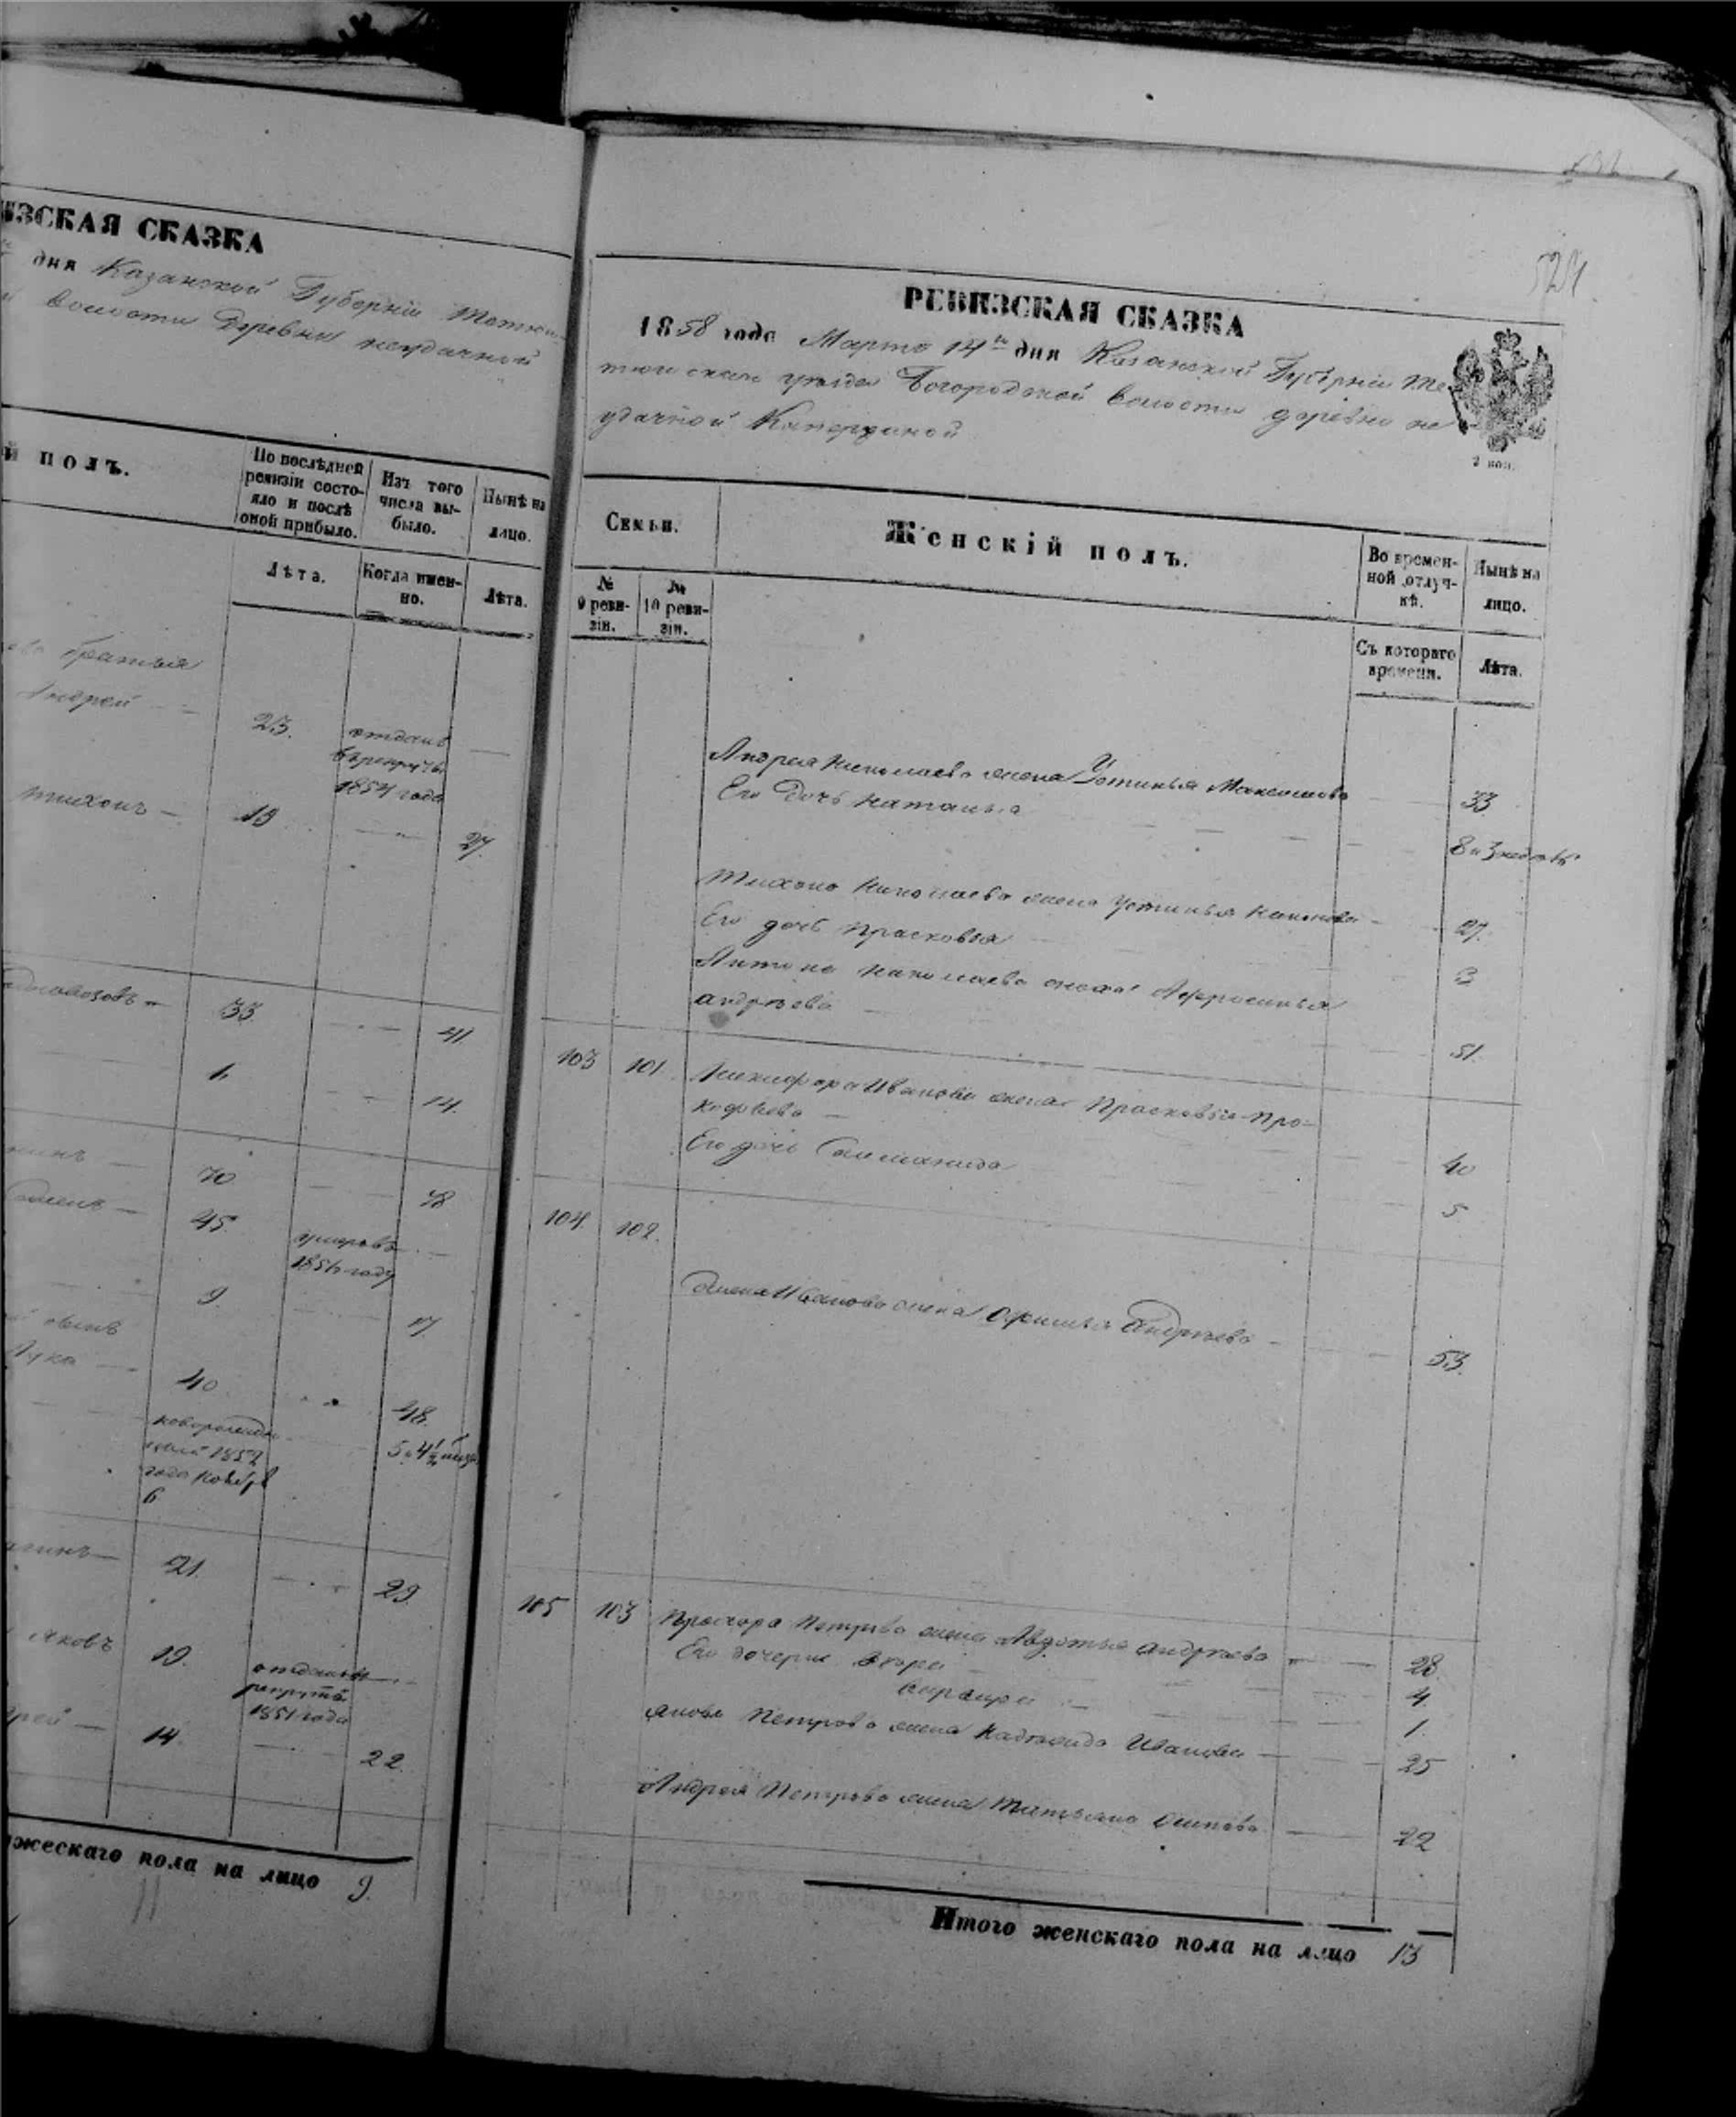 ИЗСКАЯ СКАЗКА
дня Казанской Губерніи Тетюш-
волости Деревни неудачной
й полъ.
По послѣдней ревизіи состо-
яло и послѣ оной прибыло.
Изъ того числа вы-
было.
Нынѣ на лицо.
Лѣта.
Когда имен-
но.
Лѣта.
братья
Андрей
23.
отданъ
в рекруты
1854 года
Тихонъ
19
27.
33.
41.
1.
14.
70
78
Семенъ
45.
умеръ
1856 году
9.
17.
сынъ
Лука
40
48.
новорожден
ный 1852
года Ноября
6
5 и 4½ мѣся
21.
29.
Яковъ
19.
отданъ в
рекруты
1851 года
14.
22.
жескаго пола на лицо 9.
11
524.
РЕВИЗСКАЯ СКАЗКА
1858 года Марта 14го дня Казанской Губерніи Те-
тюшскаго уѣзда Богородской волости деревни не
удачной
2 коп.
Семьи.
Женскій полъ.
Во времен-
ной отлуч-
кѣ.
Нынѣ на
лицо.
№
9 реви-
зіи.
№
10 реви-
зіи.
Съ котораго
времени.
Лѣта.
Андрея Николаева жена Устинья Максимова
33
Его дочь Наталья
8 и 3 недѣль
Тихона Николаева жена Устинья
27.
Его дочь Прасковья
3
Антона Николаева сноха Афросинья
Андрѣева
51.
103 101. Никифора Иванова жена Прасковья Про-
кофьева
40
Его дочь Саломанида
5
104. 102.
Семена Иванова жена Офимья Андрѣева
53.
105 103 Прохора Петрова жена Авдотья Андрѣева 28.
Его дочери
4.
1.
Якова Петрова жена Надѣжда Иванова 25
Андрея Петрова жена Татьяна Осипова 22
Итого женскаго пола на лицо 13